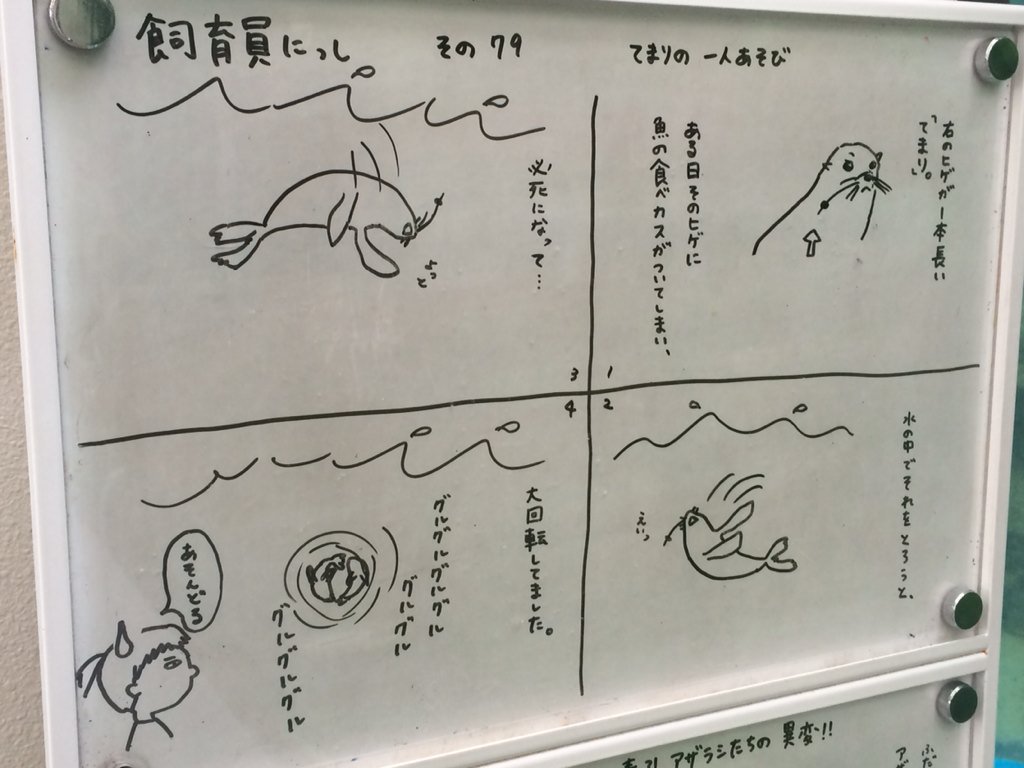 飼育員にっし
その79
てまりの 一人あそび
右のヒゲが1本長い
「てまり」。
ある日そのヒゲに
魚の食べカスがついてしまい、
1
水の中でそれをとろうと、
えいっ
2
必死になって…
よっと
3
大回転してました。
グルグルグルグル
グルグル
グルグルグルグル
あそんどる
4
アザラシたちの 異変!!